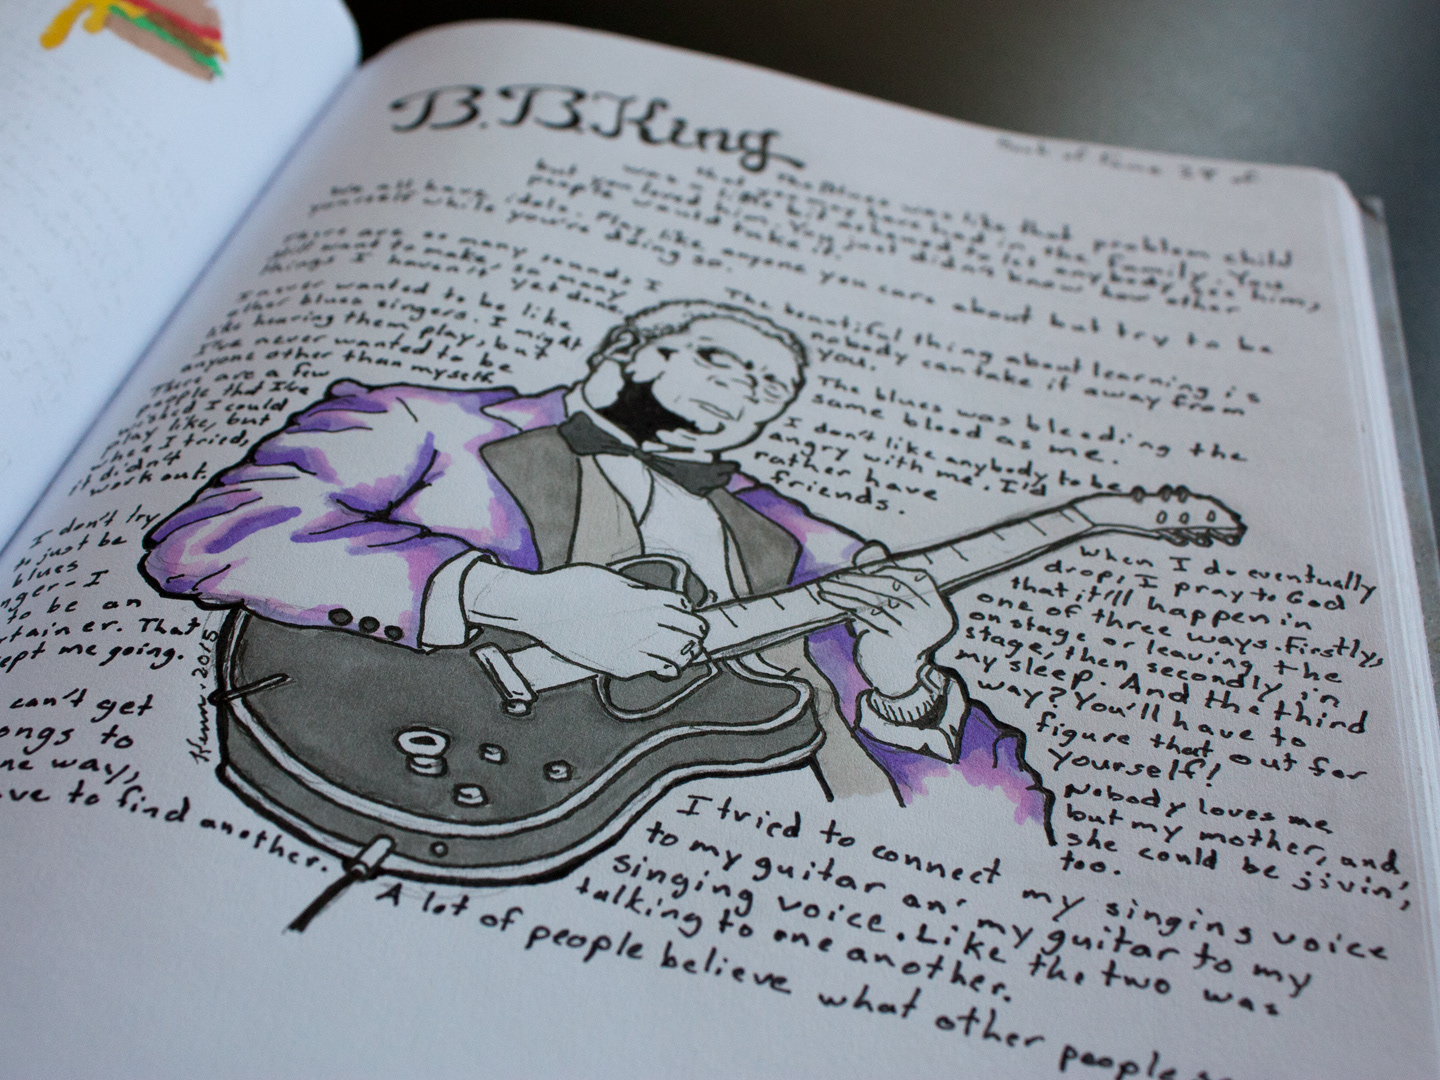 B.B.King
The Blues was like that problem child
that you may have had in the family. You
was a little bit ashamed to let anybody see him,
but you loved him. You just didn't know how other
people would take it.
We all have idols. Play like anyone you care about but try to be
yourself while you're doing so.
There are so many sounds I
still want to make, so many
things I haven't yet done.
I never wanted to be like
other blues singers. I might
like hearing them play, but
I've never wanted to be
anyone other than myself.
There are a few
people that I've
wished I could
play like, but
when I tried,
it didn't
work out.
The beautiful thing about learning is
nobody can take it away from
you.
The blues was bleeding the
same blood as me.
I don't like anybody to be
angry with me. I'd
rather have
friends.
I don't try
to just be
blues
nger - I
to be an
rtainer. That
ept me going.
can't get
ongs to
ne way,
ve to find another.
Kenn. 2015
When I do eventually
drop, I pray to God
that it'll happen in
one of three ways. Firstly,
on stage or leaving the
stage, then secondly in
my sleep. And the third
way? You'll have to
figure that out for
yourself!
Nobody loves me
but my mother, and,
she could be jivin',
too.
I tried to connect my singing voice
to my guitar an' my guitar to my
singing voice. Like the two was
talking to one another.
A lot of people believe what other people